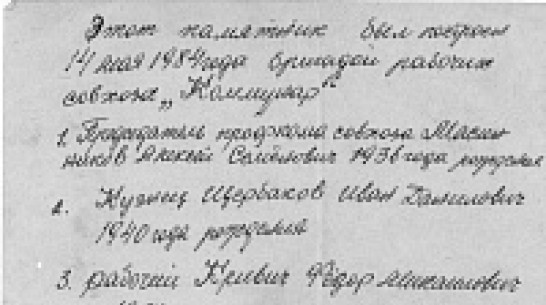 Этот памятник был построен
14 мая 1984 года бригадой рабочих
совхоза „Коммунар"
1. Председатель профкома совхоза Масин
ников Алексей Семёнович 1936 года рождения
2. Кузнец Щербаков Иван Данилович
1940 года рождения
3. рабочий Кривич Фёдор Михайлович